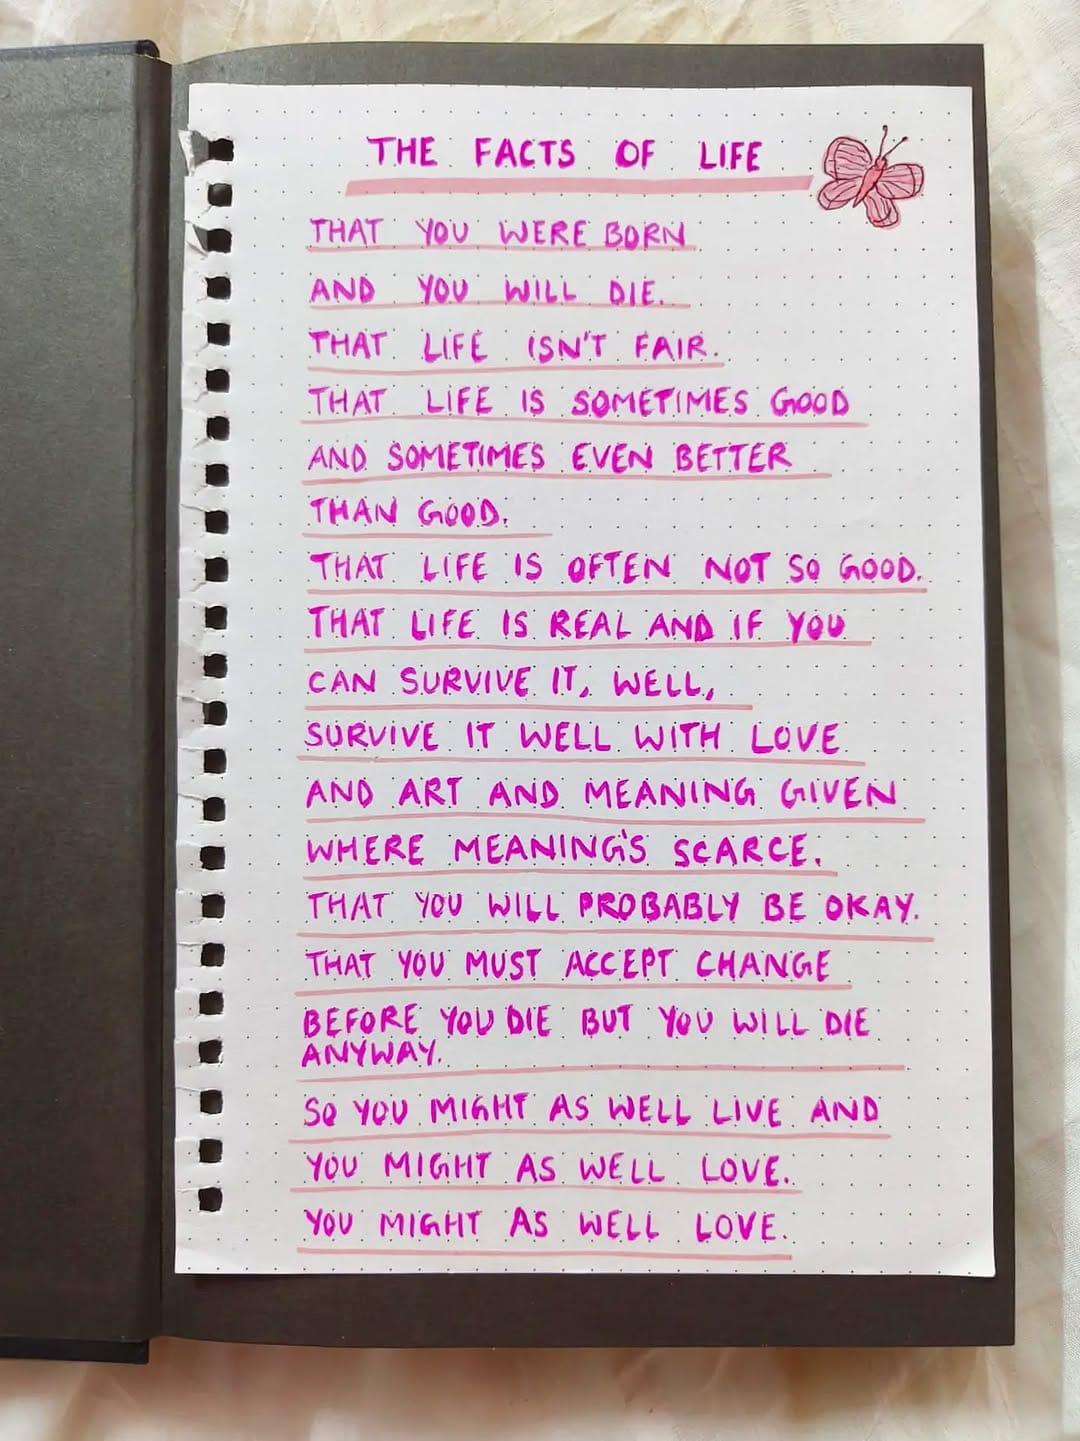 THE FACTS OF LIFE
THAT YOU WERE BORN
AND YOU WILL DIE.
THAT LIFE ISN'T FAIR.
THAT LIFE IS SOMETIMES GOOD
AND SOMETIMES EVEN BETTER
THAN GOOD.
THAT LIFE IS OFTEN NOT SO GOOD.
THAT LIFE IS REAL AND IF YOU
CAN SURVIVE IT, WELL,
SURVIVE IT WELL WITH LOVE
AND ART AND MEANING GIVEN
WHERE MEANING'S SCARCE.
THAT YOU WILL PROBABLY BE OKAY.
THAT YOU MUST ACCEPT CHANGE
BEFORE YOU DIE BUT YOU WILL DIE
ANYWAY.
SO YOU MIGHT AS WELL LIVE AND
YOU MIGHT AS WELL LOVE.
YOU MIGHT AS WELL LOVE.